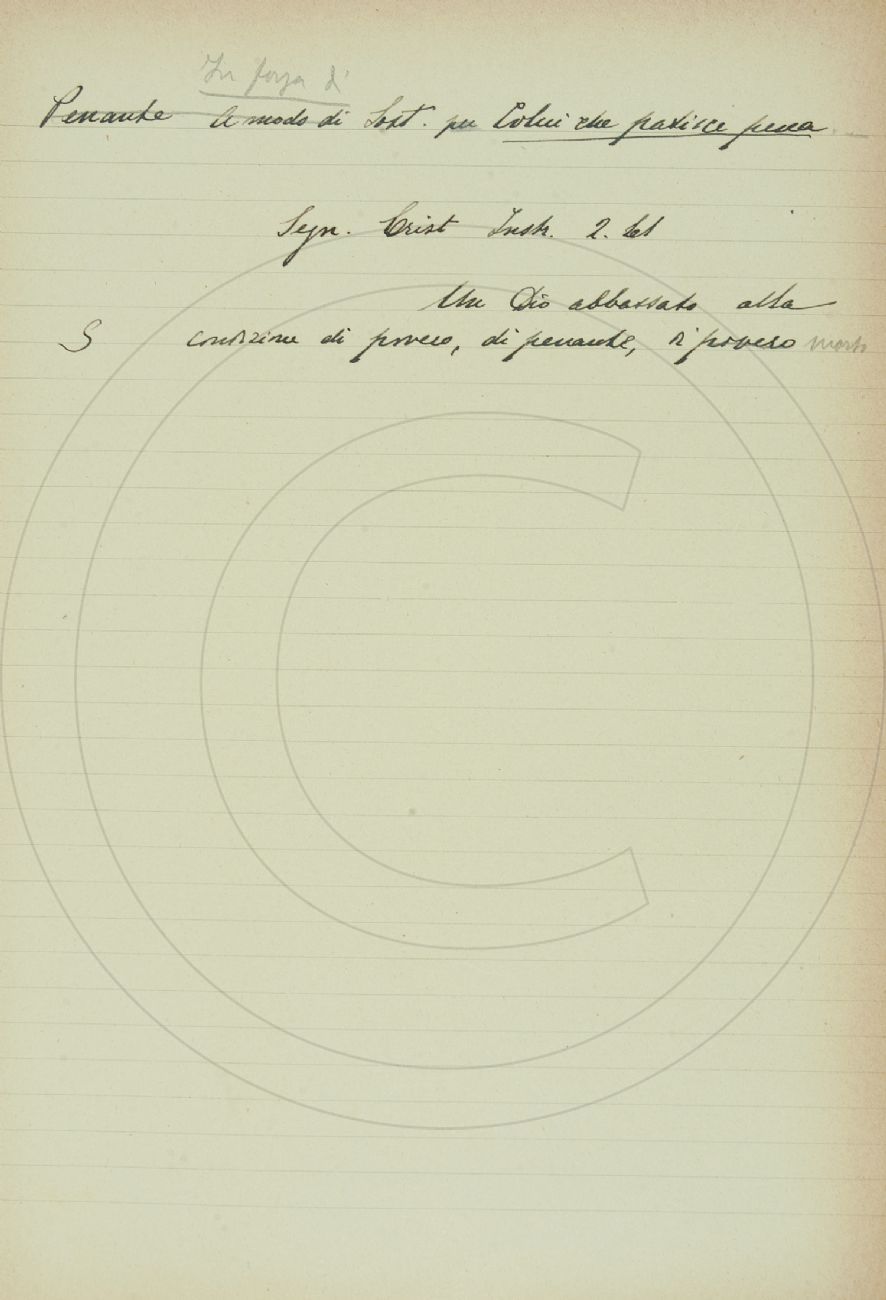 In forza di
Penante A modo di Sost. per Colui che patisce pena
Segn. Crist Instr. 2.
Un Dio abbassato alla
S condizione di povero, di penante, di povero morto